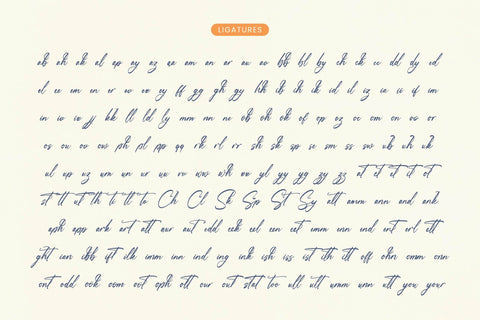 LIGATURES
ab ah ak al ap ay az aa am an ar au av bb bl by ch ck cc dd dy ed
el ee em en er ev ey ff gg gh gy hh ib ih ik id il iz ia ii if im
in iv jj kk ll ld ly mm nn nc ob oh ok of op oz oc om on oo or
os ou ov ow ph pl pp qq rk rl rr sh sk sp ss sm ss sw ub uh uk
ul up uz um un ur us ru wh yl yy yg zy zz at et it ot
st tl ut th ti tt to Ch Cl Sk Sp St Sy alt amm ann and ank
aph app ark art att aur aut idd eek eel een eet emm enn end ent erl ett
ght ian ibb ift ilk imm inn ind ing ink ish iss ist ith itt off ohn omm onn
ont odd ook oom oot oph ott our out stat too ull ult umm unn utt you your